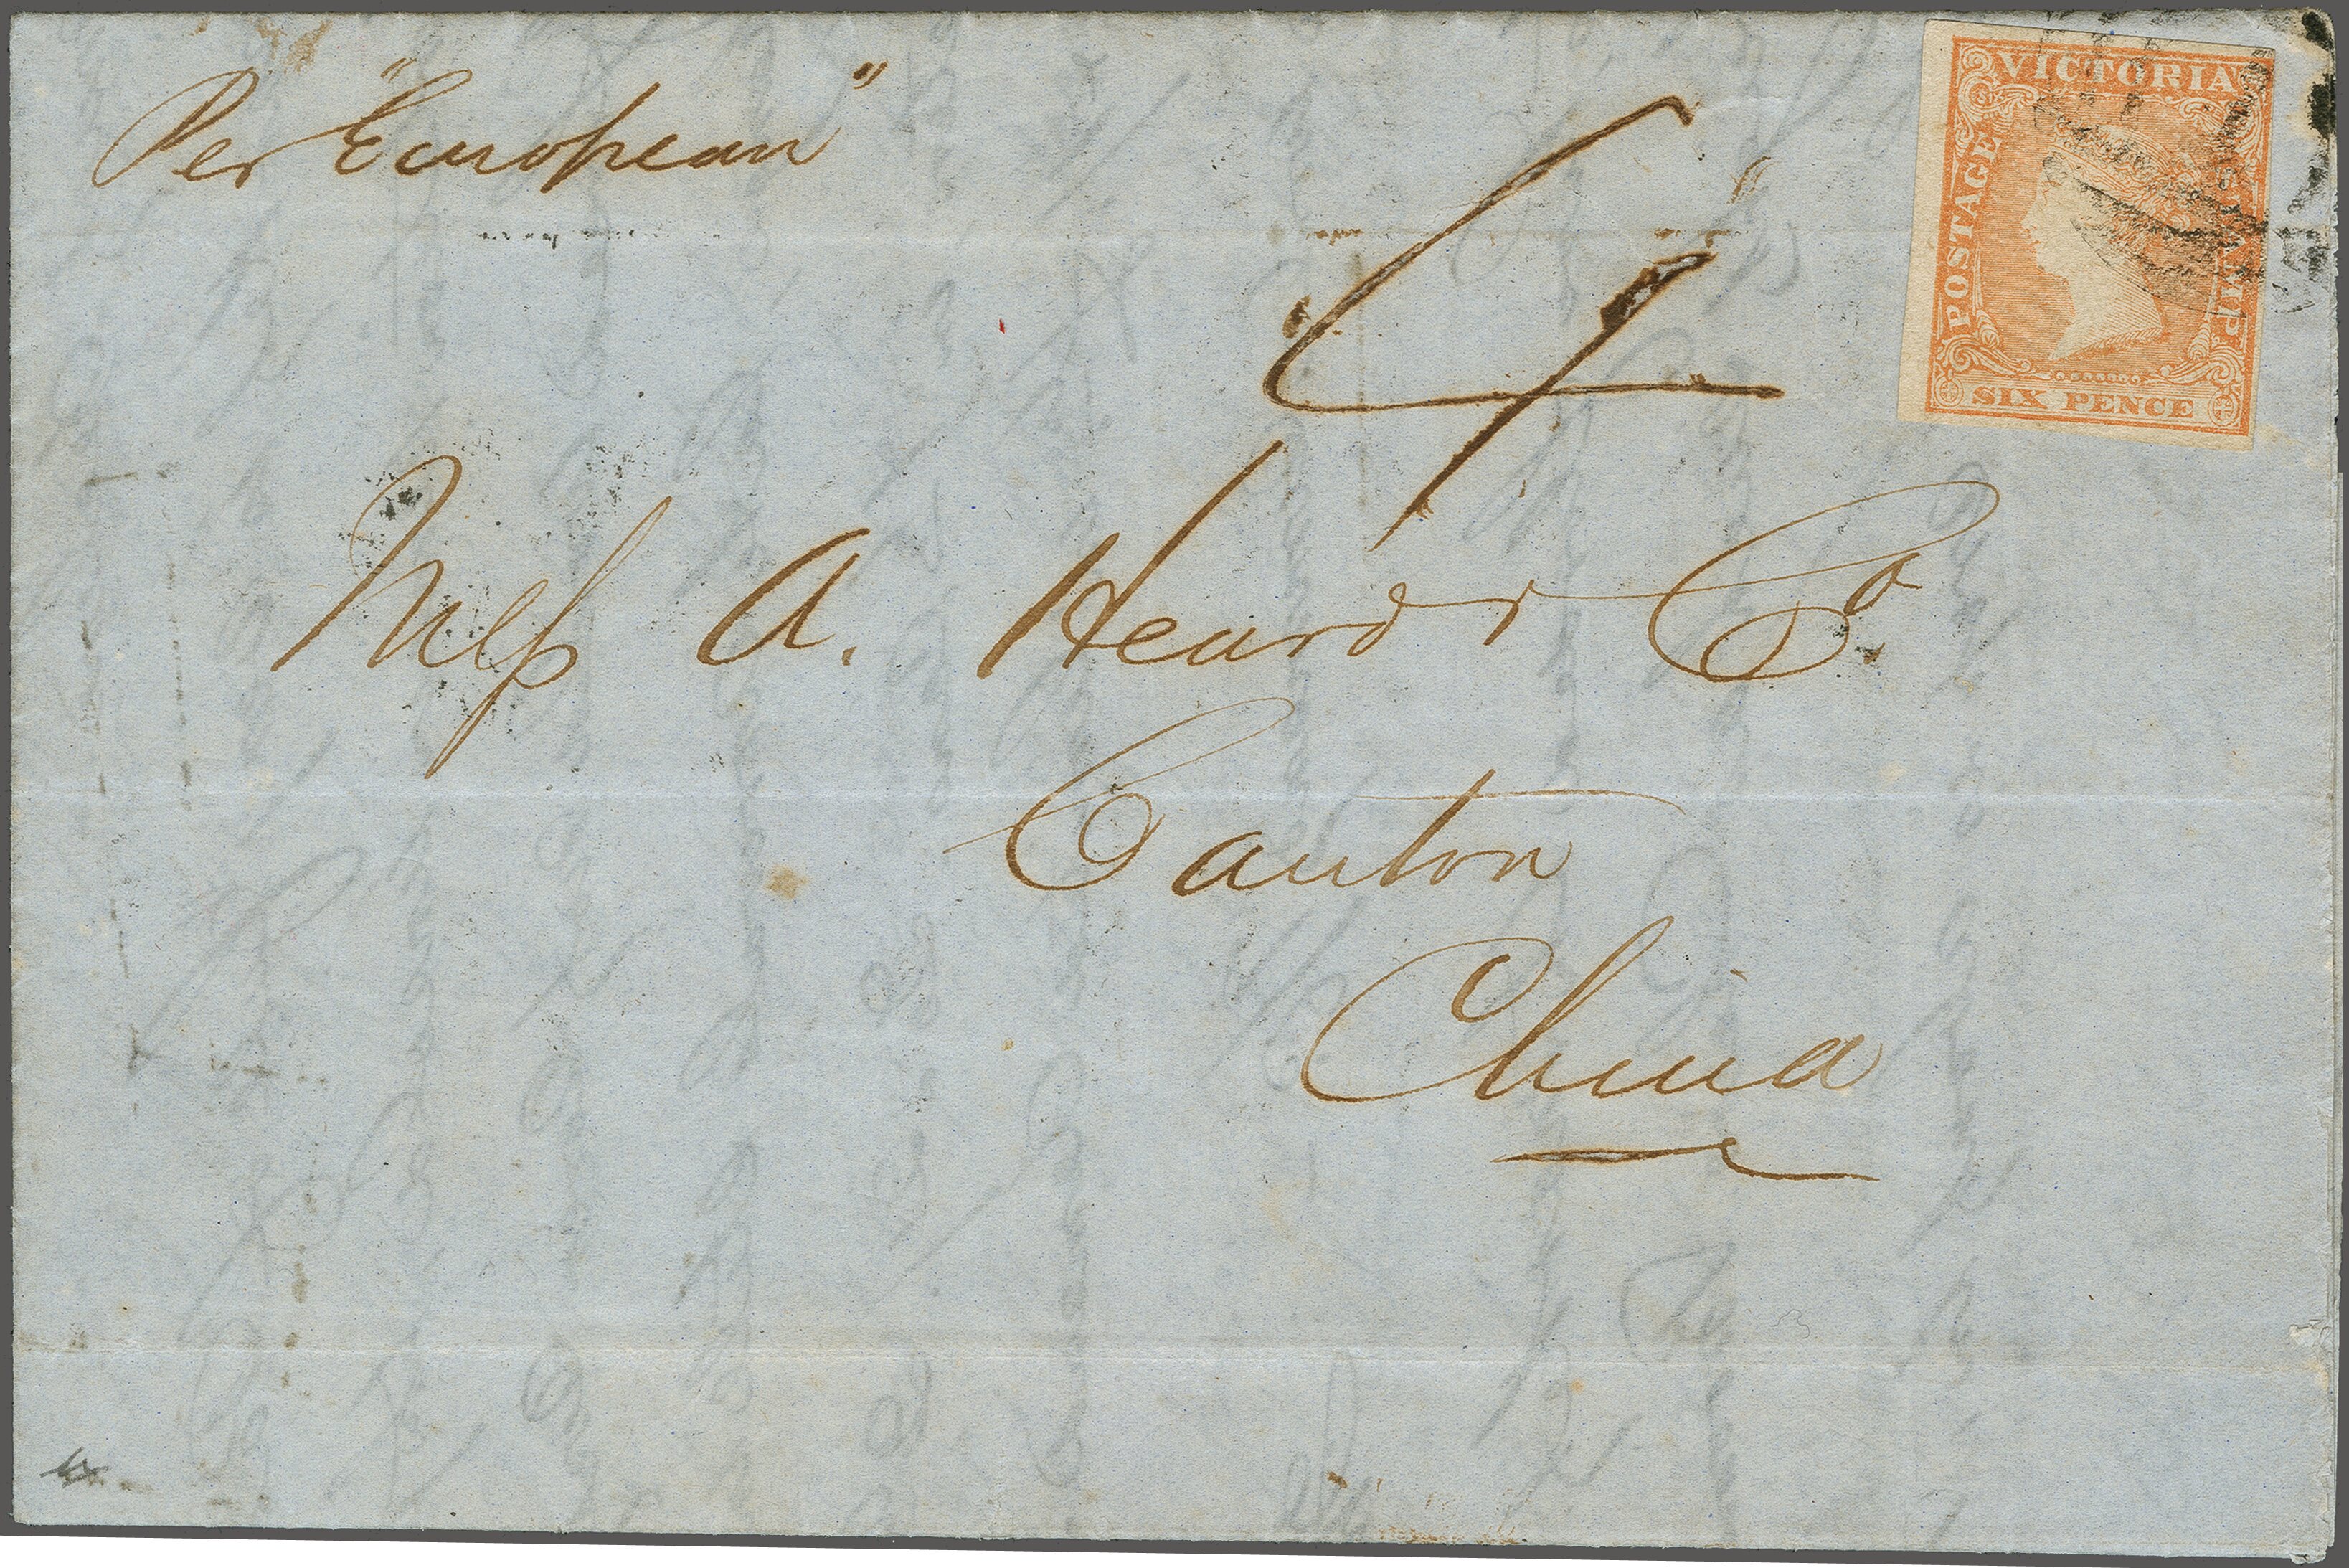 Per "European"
4
VICTORIA
POSTAGE
STAMP
SIX PENCE
Mess A. Heard & Co.
Canton
China